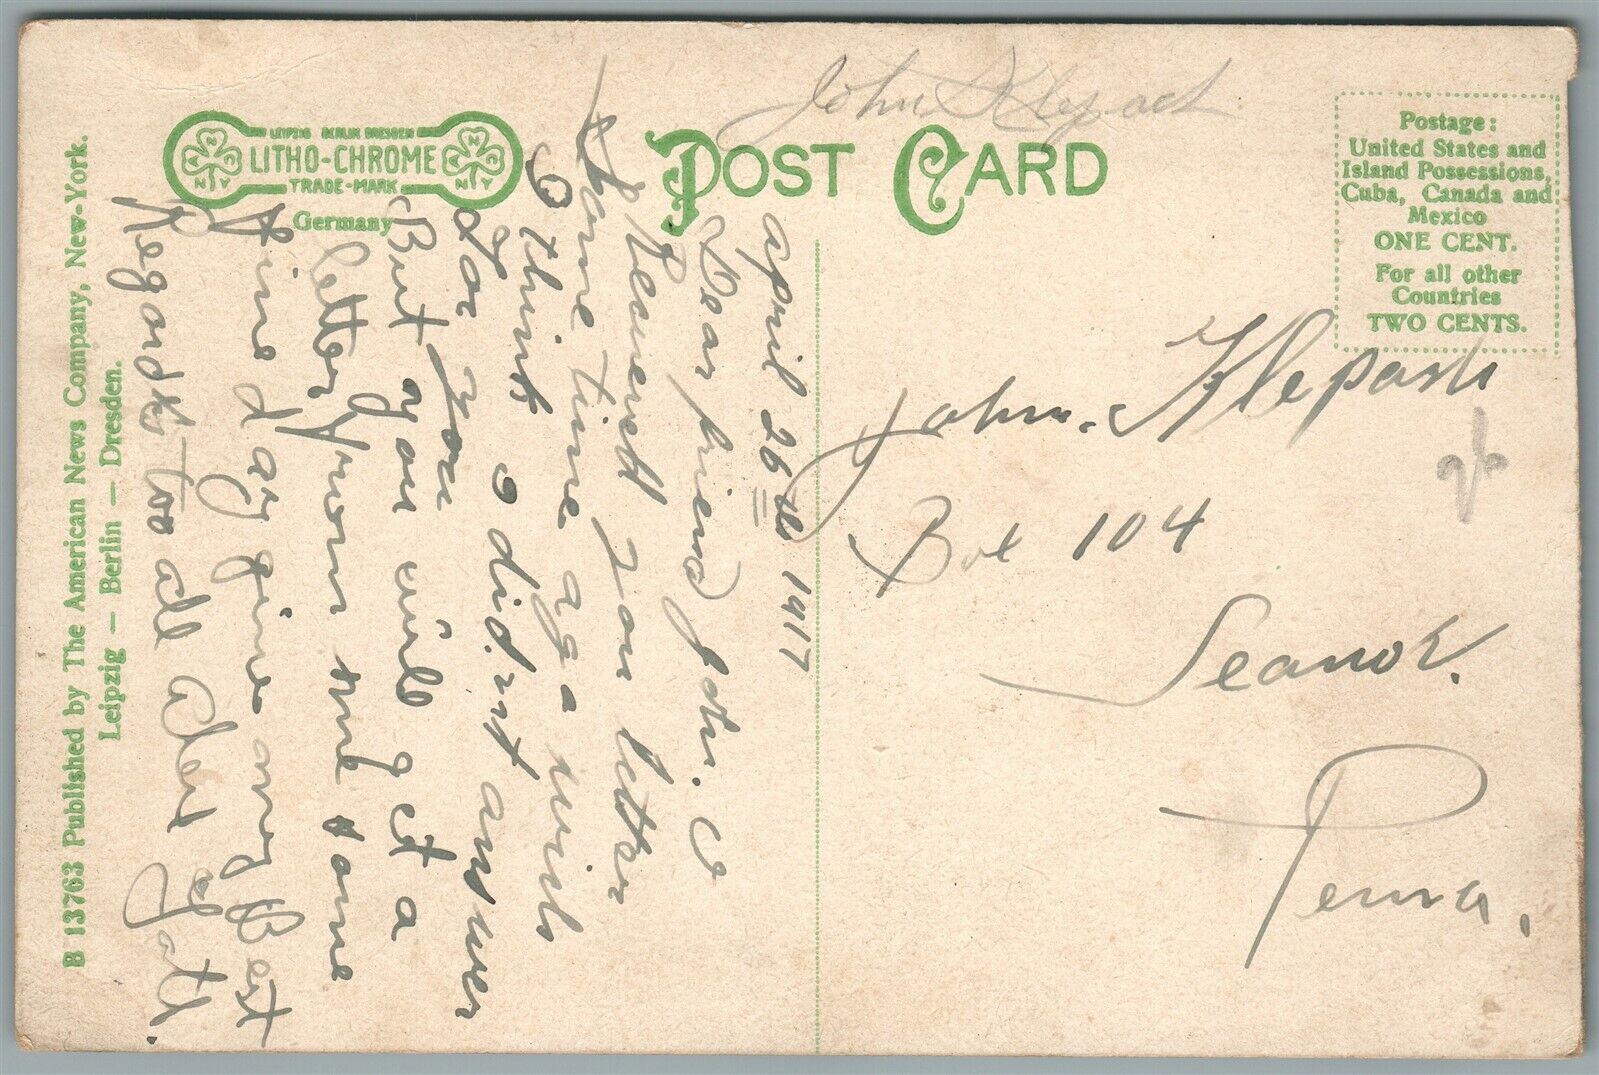 John Klepach
LEIPZIG BERLIN DRESDEN
LITHO-CHROME
TRADE-MARK
Germany
POST CARD
Postage:
United States and
Island Possessions,
Cuba, Canada and
Mexico
ONE CENT.
For all other
Countries
TWO CENTS.
B 13763 Published by The American News Company, New-York.
Leipzig — Berlin — Dresden.
april 26 1917
Dear friend John. I
Recieved you letter
Some time ago
I think I did,nt answer
for you
But you will get a
letter from me some
fine day give my Best
Regards too all
John. Klepach
Box 104
Seanor.
Penna.